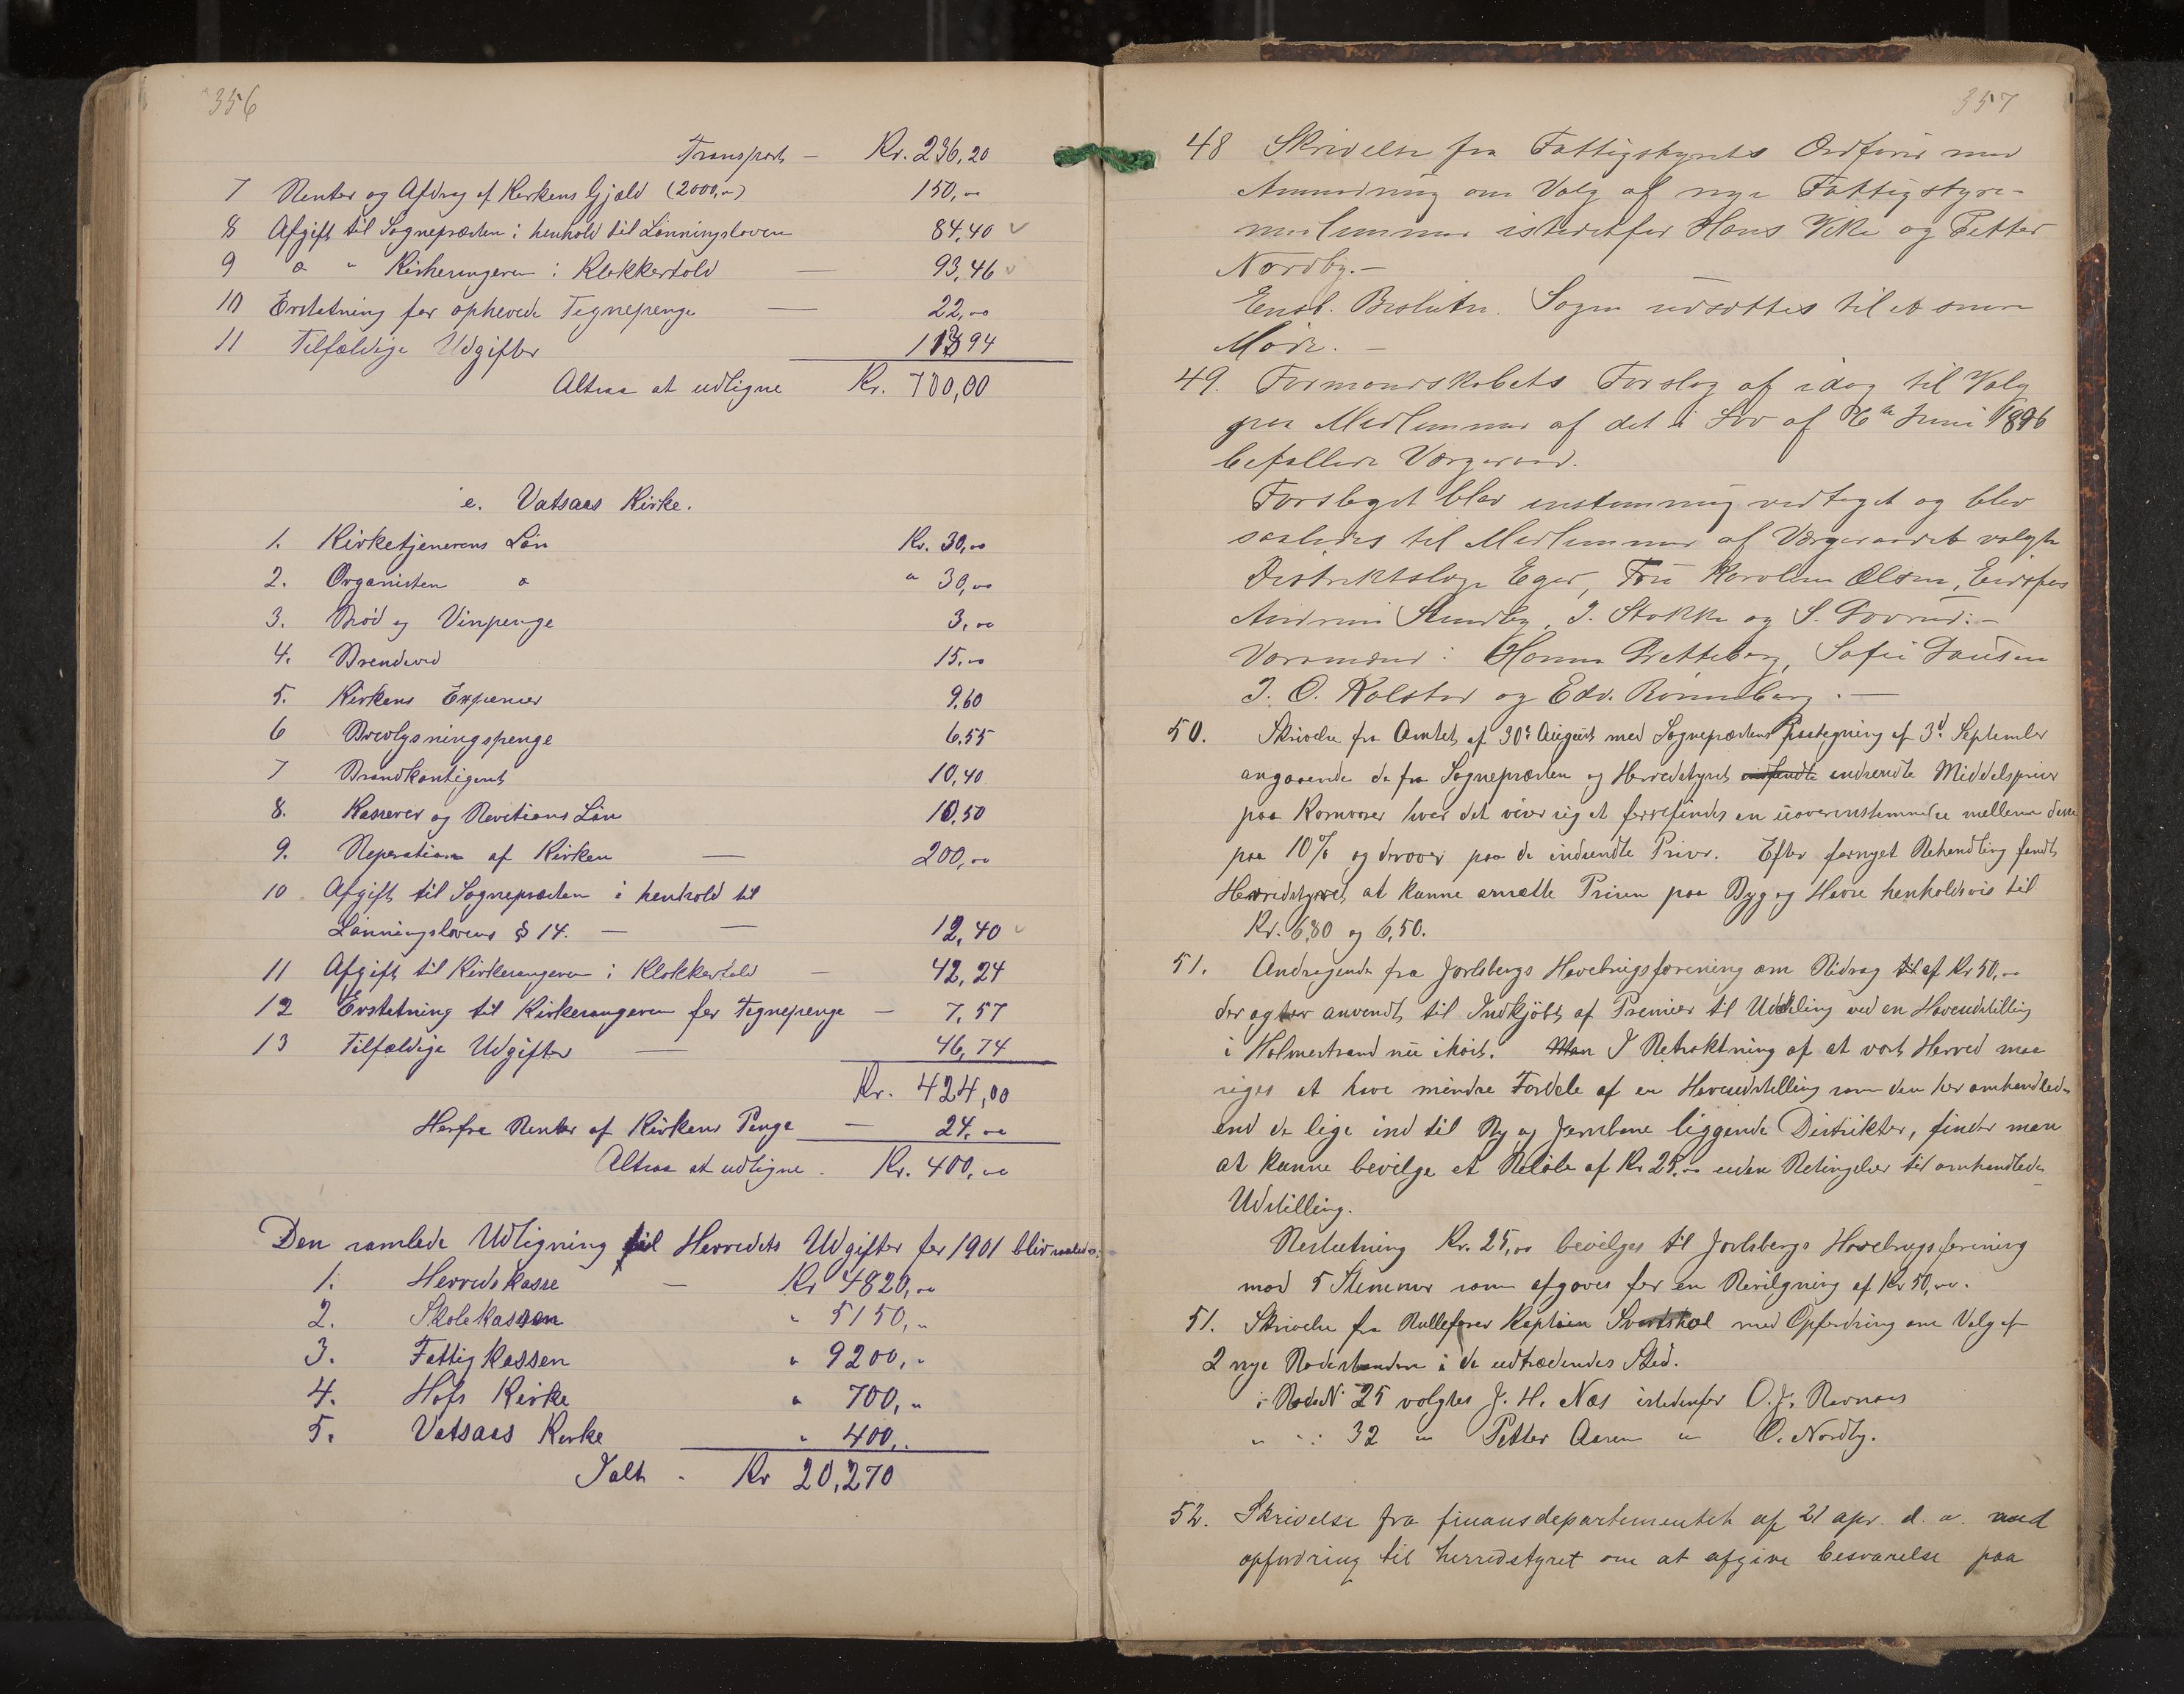 356
Transport – Kr. 236,20
7 Renter og Afdrag af Kirkens Gjæld (2000,00) 150,00
8 Afgift til Sognepræsten i henhold til Lønningsloven 84,40
9 " " Kirkesangeren i Klokkertold — 93,46
10 Erstatning for ophevede Tegnepenge — 22,00
11 Tilfældige Udgifter 113,94
Altsaa at udligne Kr. 700,00
e. Vatsaas Kirke.
1. Kirketjenerens Løn Kr. 30,00
2. Organisten " " 30,00
3. Brød og Vinpenge 3,00
4. Brændeved 15,00
5. Kirkens Expenser 9,60
6 Brevlysningspenge 6,55
7 Brandkontigent 10,40
8. Kasserer og Revisions Løn 10,50
9. Reperation af Kirken — 200,00
10 Afgift til Sognepræsten i henhold til
Lønningslovens § 14. — — 12,40
11 Afgift til Kirkesangeren i Klokkertold — 42,24
12 Erstatning til Kirkesangeren for Tegnepenge — 7,57
13 Tilfældige Udgifter — 46,74
Kr. 424,00
Herfra Renter af Kirkens Penge — 24,00
Altsaa at udligne. Kr. 400,00
Den samlede Udligning til Herredets Udgifter for 1901 bliver
1. Herredskasse — Kr 4820,00
2. Skolekassen " 5150,"
3. Fattigkassen " 9200,"
4. Hofs Kirke " 700,"
5. Vatsaas Kirke " 400,"
Ialt - Kr 20,270
357
48 Skrivelse fra Fattigstyrets Ordfører med
Anmodning om Valg af nye Fattigstyre-
medlemmer istedetfor Hans Vike og Petter
Nordby.–
Enst. Beslutn. Sagen udsættes til et senere
Møde. –
49. Formandskabets Forslag af idag til Valg
paa Medlemmer af det i Lov af 6te Juni 1896
befallede Værgeraad.
Forslaget blev enstemmig vedtaget og blev
saaledes til Medlemmer af Værgeraadet valgte
Distriktslæge Eger, Fru Karoline Olsen, Eidsfos
Andrine Sundby, J. Stokke og S. :–
Varamænd: Hanna Bretteberg, Sofie Hansen
J. O. Kolstad og Edv. Rønneberg. —
50. Skrivelse fra Amtet af 30te August med Sognepræstens Paategning af 3d September
angaaende de fra Sognepræsten og Herredstyret indsendte indsendte Middelspriser
paa Kornvarer hvor det viser sig at forrefindes en uoverenstemmelse mellem disse
paa 10% og derover paa de indsendte Priser. Efter fornyet Behandling fandt
Herredstyret at kunne ansætte Prisen paa Byg og Havre henholdsvis til
Kr. 6,80 og 6,50.
51. Andragende fra Jarlsbergs Havebrugsforening om Bidrag til af Kr 50,00
der agtes anvendt til Indkjøbt af Premier til Uddeling ved en Haveudstilling
i Holmestrand nu ihøst. Man I Betraktning af at vort Herred maa
siges at have mindre Fordele af en Haveudstilling som den her omhandlede
end de lige ind til By og Jernbane liggende Distrikter, finder man
at kunne bevilge et Beløb af Kr 25,00 uden Betingelser til omhandlede
Udstilling.
Beslutning Kr. 25,00 bevilges til Jarlsbergs Havebrugsforening
mod 5 Stemmer som afgaves for en Bevilgning af Kr 50,00.
51. Skrivelse fra Rullefører Kaptein Svartskol med Opfordring om Valg af
2 nye Rodesbander i de udtrædendes Sted.
i Rode N 25 valgtes J. H. Næs istedenfor O. J. Revnaes
" " : 32 " Petter Aasen " O. Nordby.
52. Skrivelse fra finansdepartementet af 21 apr. d. a. med
opfordring til herredstyret om at afgive besvarelse paa